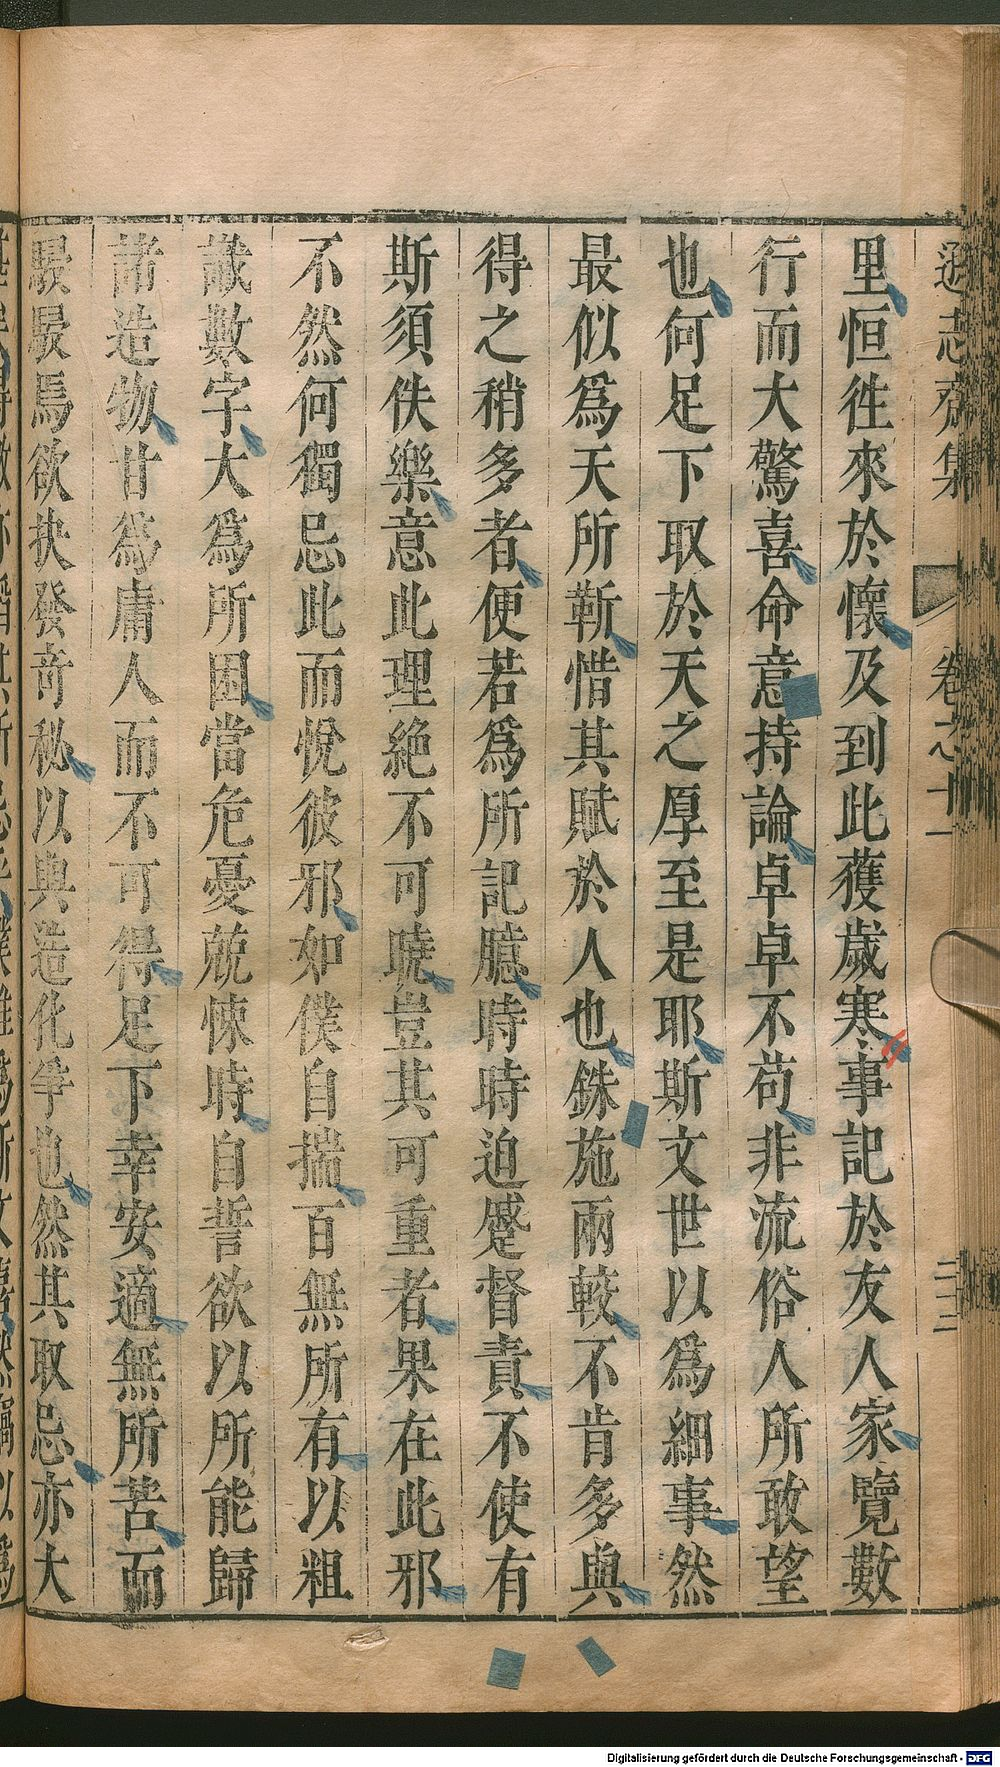 遜志齋集 卷之十一 二十二
里恒徃來於懷及到此獲歲寒事記於友人家覽數
行而大驚喜命意持論卓卓不苟非流俗人所敢望
也何足下取於天之厚至是耶斯文世以爲細事然
最似爲天所靳惜其賦於人也銖施兩較不肯多與
得之稍多者便若爲所記臆時時迫蹙督責不使有
斯須佚樂意此理絶不可曉豈其可重者果在此邪
不然何獨忌此而悅彼邪如僕自揣百無所有以粗
識數字大爲所困當危憂兢悚時自誓欲以所能歸
諸造物甘爲庸人而不可得足下幸安適無所苦而
駸駸焉欲抉發奇秘以與造化爭也然其取忌亦大
Digitalisierung gefördert durch die Deutsche Forschungsgemeinschaft - DFG